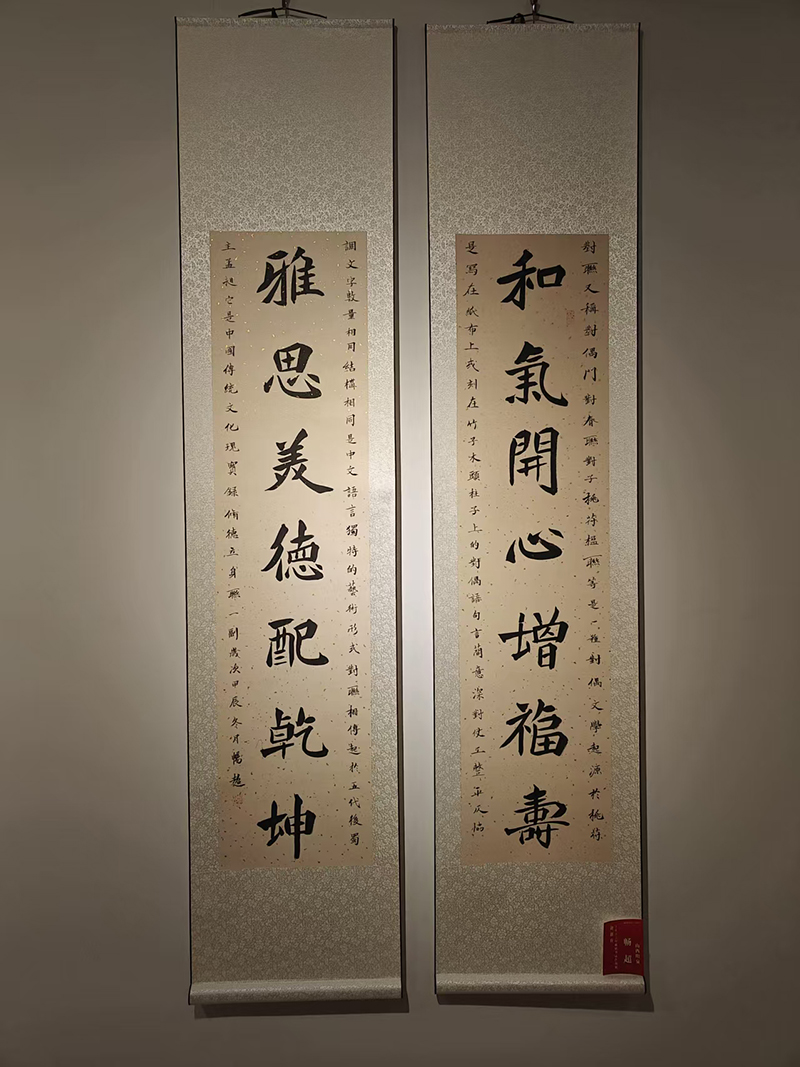 和氣開心增福壽
對聯又稱對偶門對春聯對子桃符楹聯等是一種對偶文學起源於桃符
是寫在紙布上或刻在竹子木頭柱子上的對偶語句言簡意深對仗工整平仄協
雅思美德配乾坤
調文字數量相同結構相同是中文語言獨特的藝術形式對聯相傳起於五代後蜀
主孟昶它是中國傳統文化瑰寶錄修德立身聯一副歲次甲辰冬月暢超
暢超